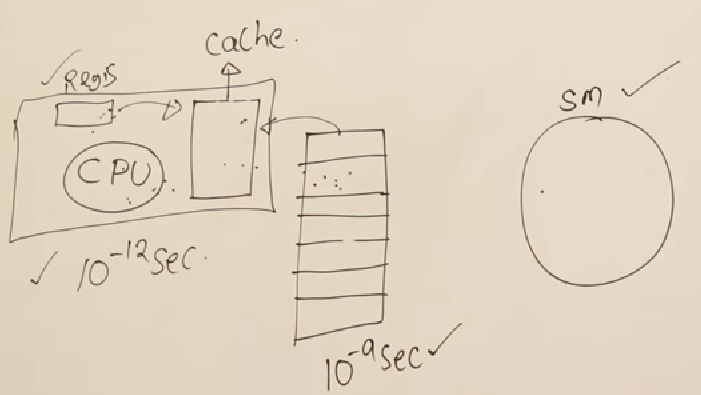 cache.
Regis
SM
CPU
10⁻¹² sec.
10⁻⁹ sec